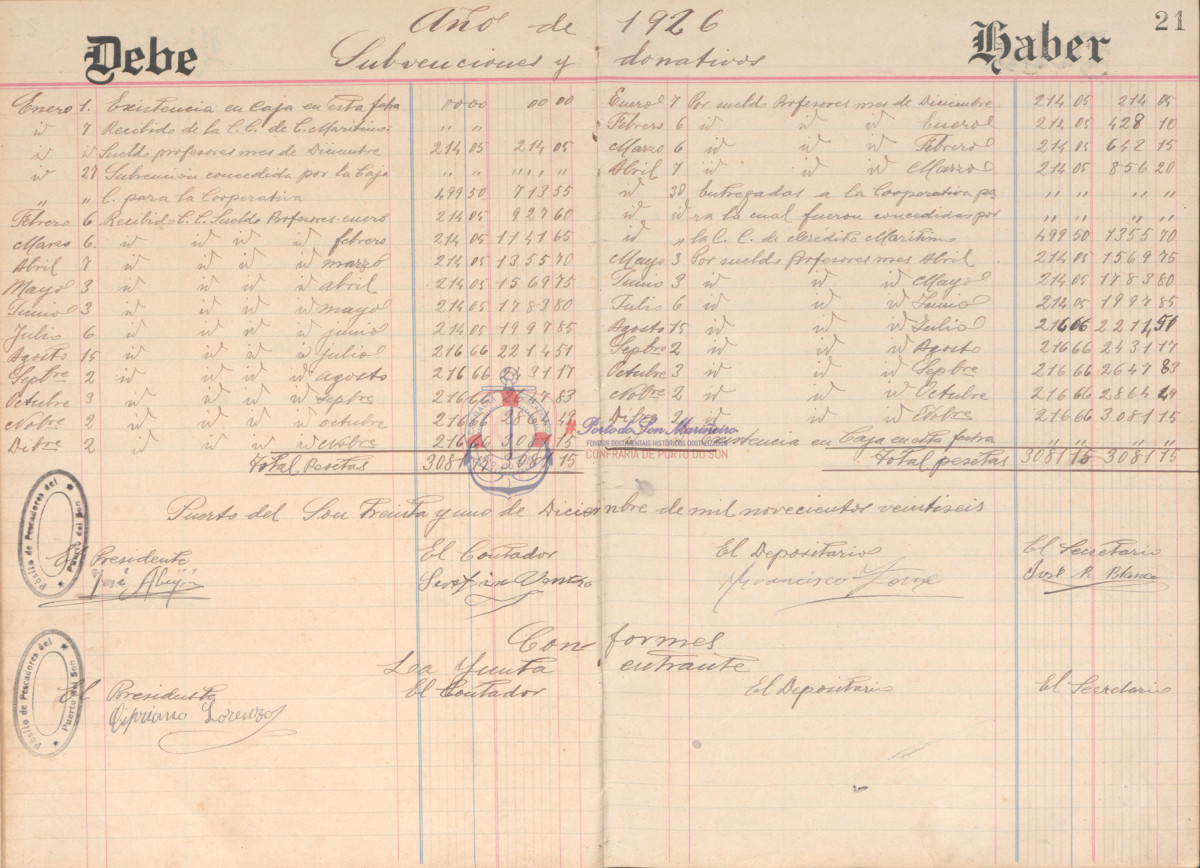 Año de 1926
21
Debe
Haber
Subvenciones y donativos
Enero 1. Existencia en Caja en esta fecha 00 00 00 00
id 7 Recibido de la C. C. de C. Marítimo. " "
id id Sueldo profesores mes de Diciembre 214 05 214 05
id 29 Subvención concedida por la Caja " " " "
" " C. para la Cooperativa 499 50 713 55
Febrero 6 Recibido C. C. Sueldo Profesores enero 214 05 927 60
Marzo 6. id id id id febrero 214 05 1141 65
Abril 7 id id id id marzo 214 05 1355 70
Mayo 3 id id id id abril 214 05 1569 75
Junio 3 id id id id mayo 214 05 1783 80
Julio 6 id id id id junio 214 05 1997 85
Agosto 15 id id id id julio 216 66 2214 51
Sepbre 2 id id id id agosto 216 66 2431 17
Octubre 3 id id id id sepbre 216 66 2647 83
Nobre 2 id id id id octubre 216 66 2864 49
Dibre 2 id id id id Nobre 216 66 3081 15
Total Pesetas 3081 15 3081 15
Enero 7 Por sueldo Profesores mes de Diciembre 214 05 214 05
Febrero 6 id id id Enero 214 05 428 10
Marzo 6 id id id Febrero 214 05 642 15
Abril 7 id id id Marzo 214 05 856 20
id 30 Entregadas a la Cooperativa pa " " " "
id id ra la cual fueron concedidas por " " " "
id " la C. C. de Crédito Marítimo 499 50 1355 70
Mayo 3 Por sueldo Profesores mes Abril 214 05 1569 75
Junio 3 id id id Mayo 214 05 1783 80
Julio 6 id id id Junio 214 05 1997 85
Agosto 15 id id id Julio 216 66 2211,51
Sepbre 2 id id id Agosto 216 66 2431 17
Octubre 3 id id id Sepbre 216 66 2647 83
Nobre 2 id id id Octubre 216 66 2864 49
Dibre 2 id id id Nobre 216 66 3081 15
Existencia en Caja en esta fecha " " " "
Total pesetas 3081 15 3081 15
#Porto do Son Mariñeiro
FONDOS DOCUMENTAIS HISTÓRICOS DIXITALIZADOS
CONFRARIA DE PORTO DO SON
Puerto del Son Treinta y uno de Diciembre de mil novecientos veintiseis
Pósito de Pescadores del Puerto del Son
El Presidente El Contador El Depositario El Secretario
José Abeijón Francisco José R. Blanco
Conformes
La Yunta entrante
Pósito de Pescadores del Puerto del Son
El Presidente El Contador El Depositario El Secretario
Cipriano Lorenzo